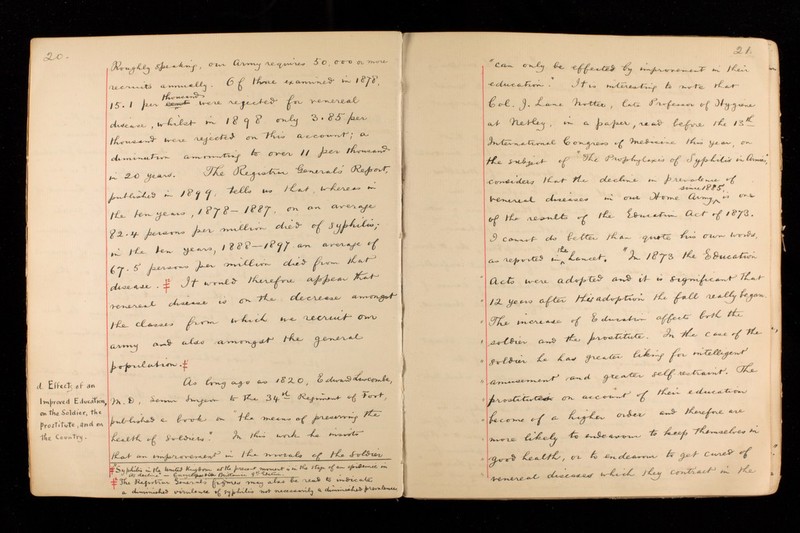 20.
Roughly speaking, our Army requires 50,000 or more
recruits annually. Of those examined in 1878,
15.1 per thousand were rejected for venereal
disease, whilst in 1898 only 3.85 per
thousand were rejected on this account; a
diminution amounting to over 11 per thousand
in 20 years. The Registrar General's Report,
published in 1899, tells us that, whereas in
the ten years, 1878–1887, on an average
82.4 persons per million died of syphilis;
in the ten years, 1888–1897 an average of
67.5 persons per million died from that
disease. It would therefore appear that
venereal disease is on the decrease amongst
the classes from which we recruit our
army and also amongst the general
population.
d. Effects of an
Improved Education,
on the Soldier, the
Prostitute, and on
the Country.
As long ago as 1820, Edward
M.D., Surgeon to the 34th Regiment of Foot,
published a book on "the means of preserving the
health of Soldiers." In this work he wrote
that an improvement in the morals of the Soldier
Syphilis in the United Kingdom at the present moment is in the stage of an epidemic in
its decline"
The Registrar General's figures may also be read to indicate
a diminished virulence of syphilis not necessarily a diminished prevalence
21.
"can only be effected by improvement in their
education." It is interesting to note that
Col. J. Lane Notter, late Professor of Hygiene
at Netley, in a paper, read before the 13th
International Congress of Medicine this year, on
the subject of "The Prophylaxis of Syphilis in Armies",
considers that the decline in prevalence of
venereal diseases in our Home Army, since 1885, is one
of the results of the Education Act of 1873.
I cannot do better than quote his own words,
as reported in the Lancet. "In 1873 the Education
Acts were adopted and it is significant that
12 years after their adoption the fall really began.
The increase of Education affects both the
soldier and the prostitute. In the case of the
soldier he has greater liking for intelligent
amusement and greater self restraint. The
prostitutes on account of their education
become of a higher order and therefore are
more likely to endeavour to keep themselves in
good health, or to endeavour to get cured of
venereal diseases which they contract in the